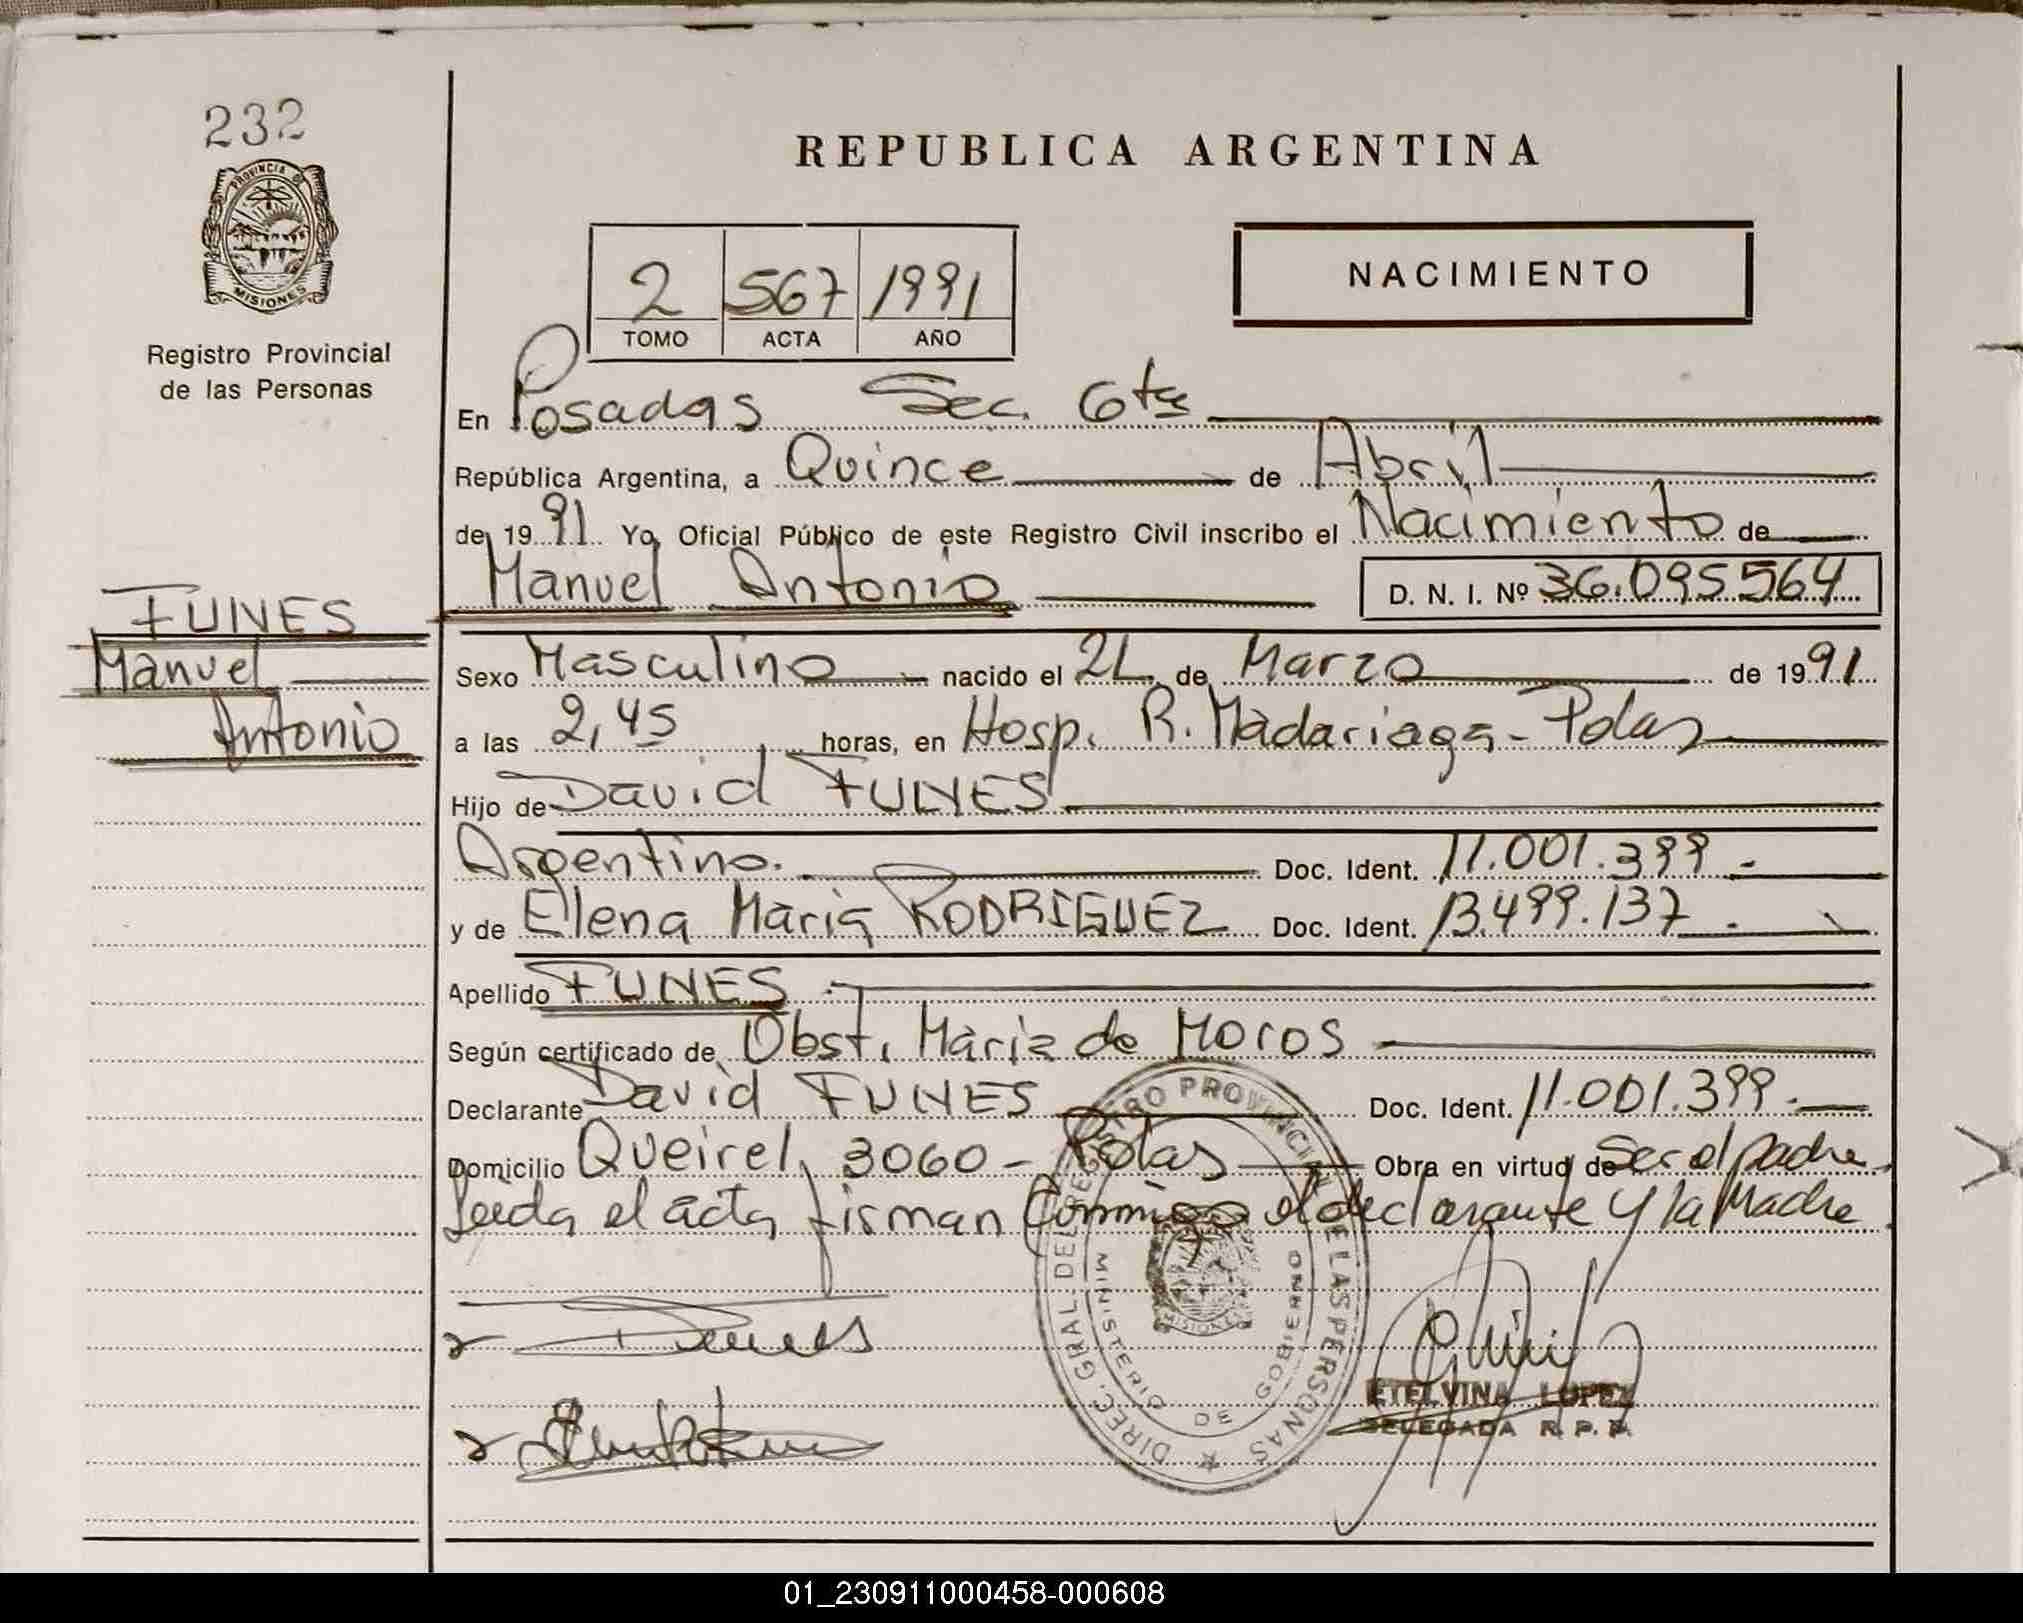 232
PROVINCIA DE
MISIONES
Registro Provincial
de las Personas
REPUBLICA ARGENTINA
2 567 1991
TOMO ACTA AÑO
NACIMIENTO
En Posadas Sec. 6ta
República Argentina, a Quince de Abril
de 1991 Yo, Oficial Público de este Registro Civil inscribo el Nacimiento de
Manuel Antonio D. N. I. Nº 36.095.564
FUNES
Manuel
Antonio
Sexo Masculino nacido el 21 de Marzo de 1991
a las 2,45 horas, en Hosp. R. Madariaga - Pdas
Hijo de David FUNES
Argentino. Doc. Ident. 11.001.399.-
y de Elena Maria RODRIGUEZ Doc. Ident. 13.499.137.-
Apellido FUNES.-
Según certificado de Obst. Maria de Moros
Declarante David FUNES Doc. Ident. 11.001.399.-
Domicilio Queirel 3060 - Pdas Obra en virtud de Ser el padre.
Leida el acta firman Conmigo el declarante y la Madre
DIREC. GRAL. DEL REGISTRO PROVINCIAL DE LAS PERSONAS
MINISTERIO DE GOBIERNO
MISIONES
ETELVINA LOPEZ
DELEGADA R. P. P.
01_230911000458-000608